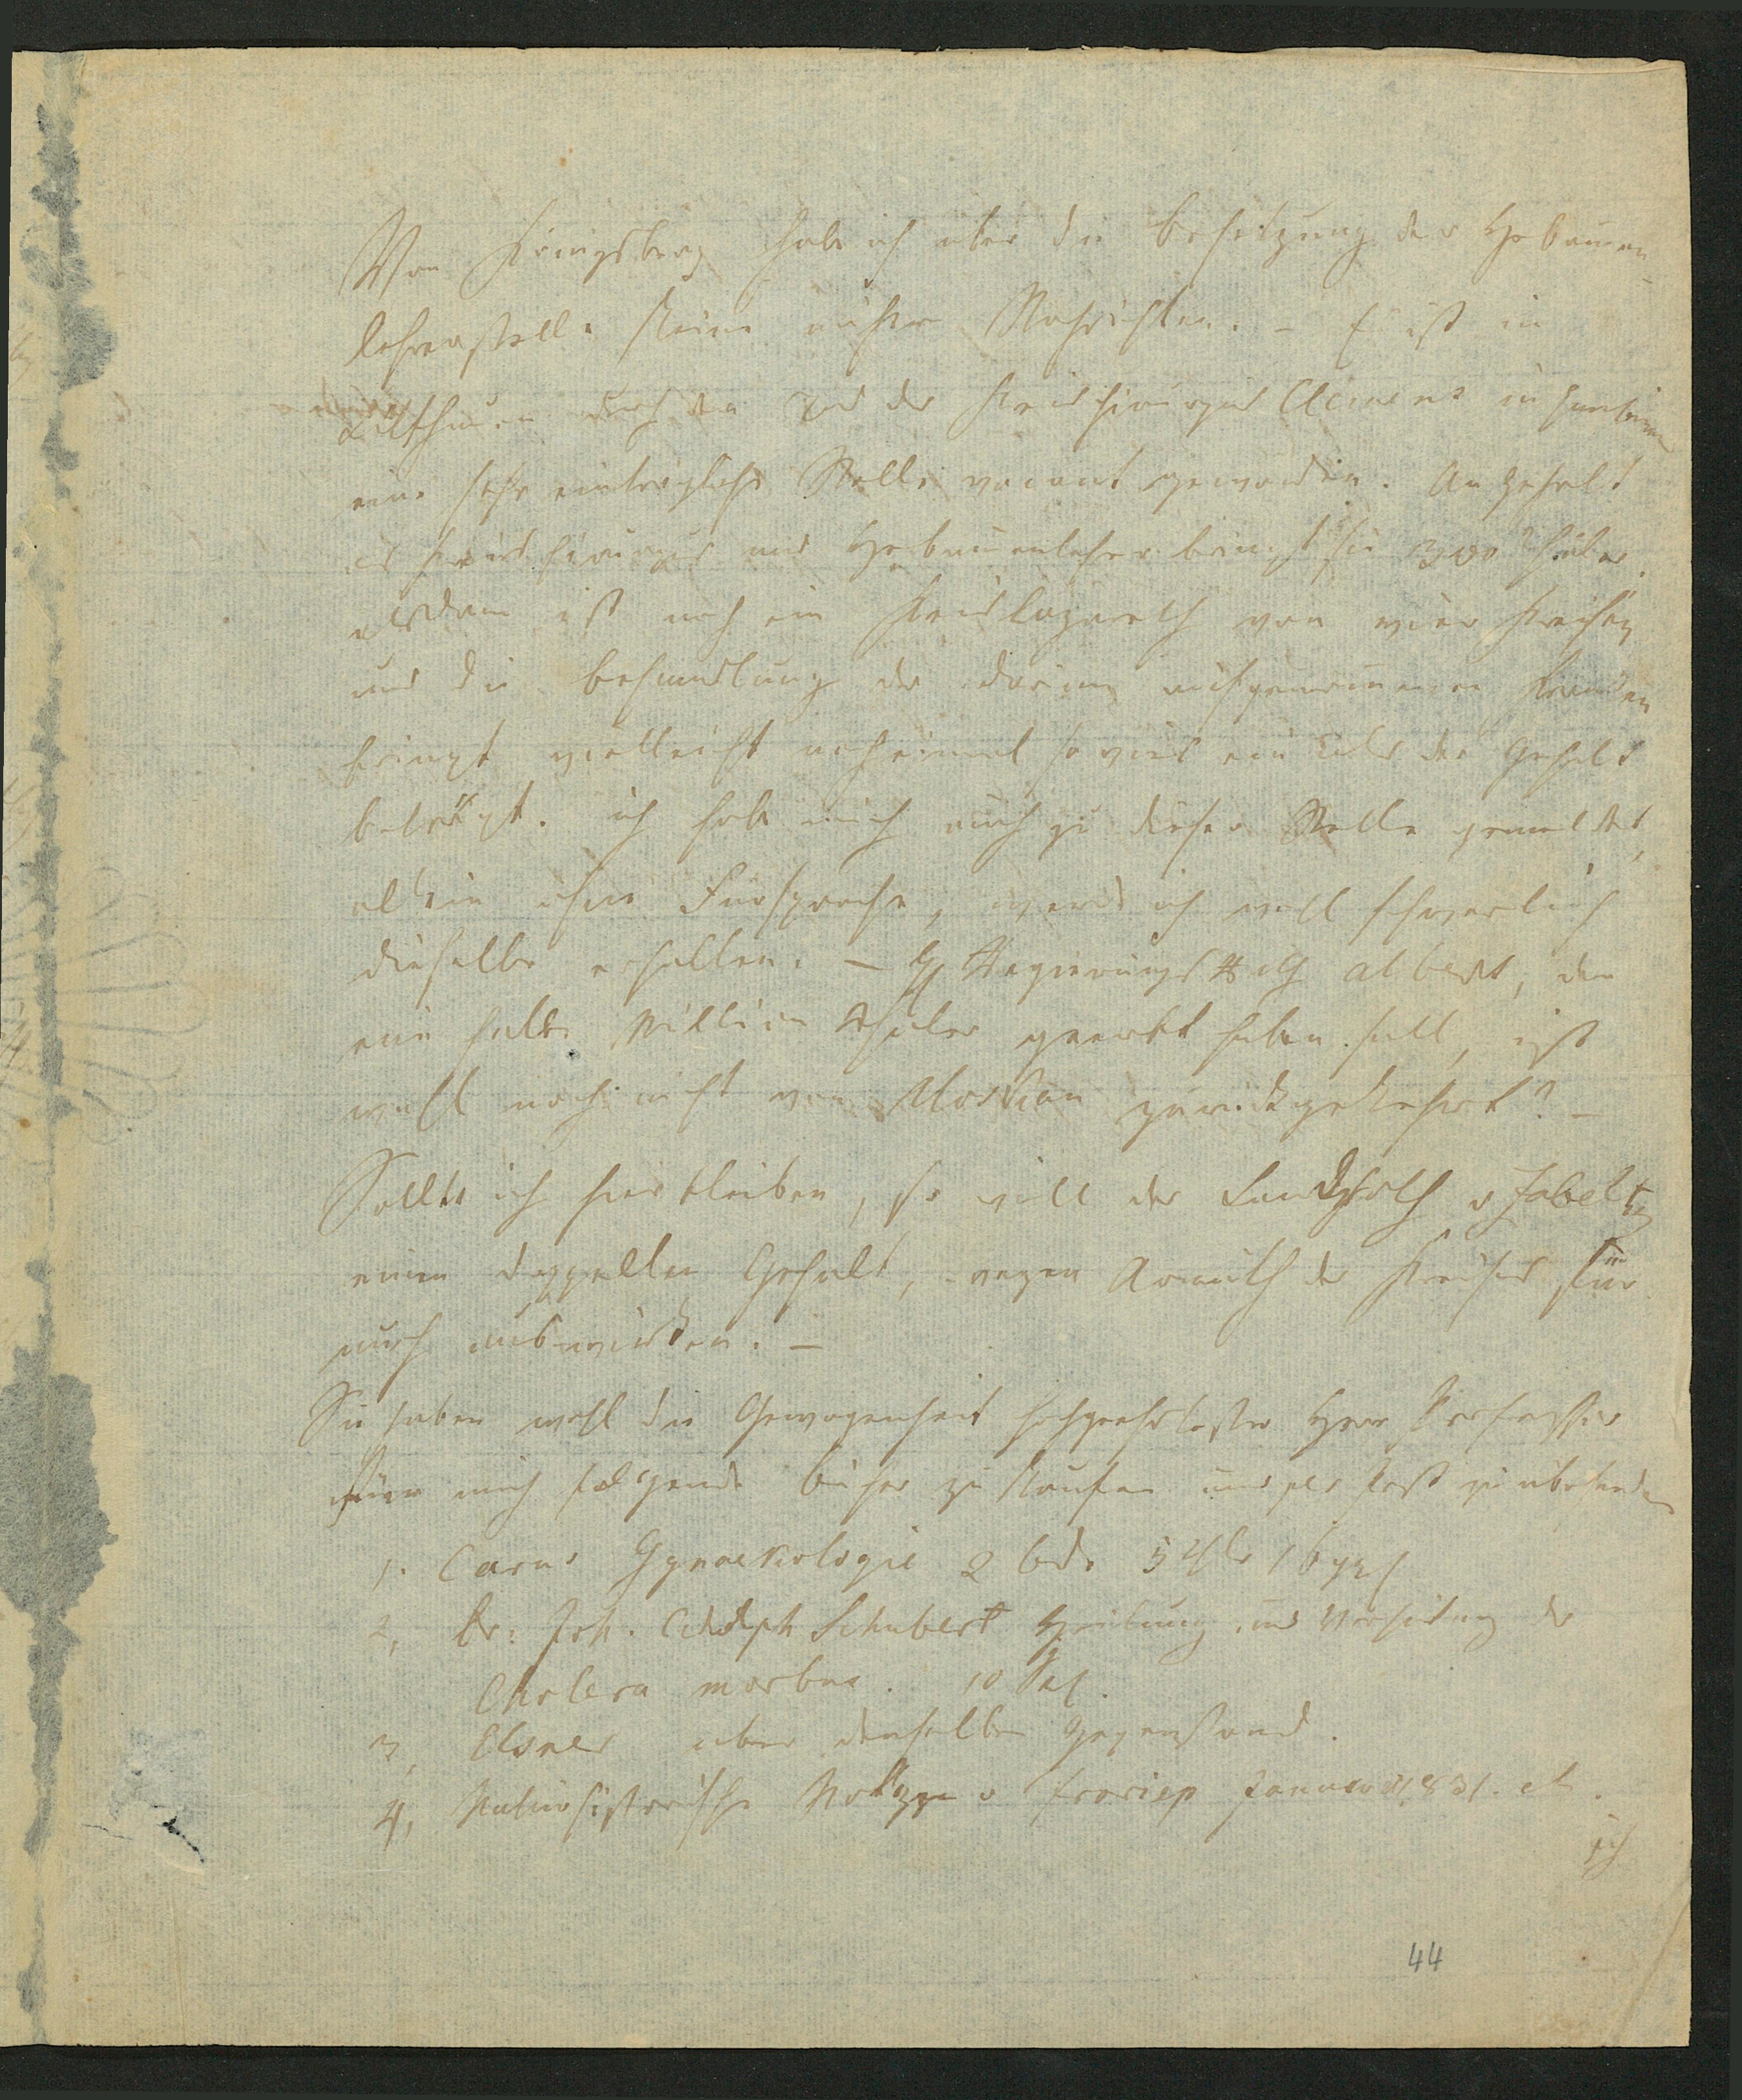 Von Königsberg habe ich über die Besetzung der Hebammen-
lehrerstelle keine nähere Nachrichten. – Es ist in
Litthauen durch den Tod des Kreischirurgus Clemens in Gumbinnen
eine sehr einträgliche Stelle vacant geworden. An Gehalt
als Kreischirurgus und Hebammenlehrer bringt sie 300 Thaler.
alsdann ist noch ein Kreislazareth von vier Kreisen
und die Behandlung der darinn aufgenommenen Kranken
bringt vielleicht noch einmal so viel ein als das Gehalt
beträgt. ich habe mich auch zu dieser Stelle gemeldet,
allein ohne Fürsprache, werde ich wohl schwerlich
dieselbe erhalten. – H Regierungs Rath Albert, der
eine halbe Million Thaler geerbt haben soll, ist
wohl noch nicht von Moskau zurückgekehrt? –
Sollte ich hier bleiben, so will der Landrath v Zabeltz
einen doppelten Gehalt, wegen Armuth des Kreises für
mich auswirken. –
Sie haben wohl die Gewogenheit hochgeehrtester Herr Professor
für mich folgende Bücher zu kaufen und per Post zu übersenden
1. Carus Gynaekologie 2 Bde 5 Thlr 16 ggl
2, Dr: Joh. Adolph Schubert Heilung und Verhütung der
Cholera morbus. 10 Sgl.
3, Elsner über denselben Gegenstand.
4, Naturhistorische Notizen v Froriep Januar 1831. et.
ich
44